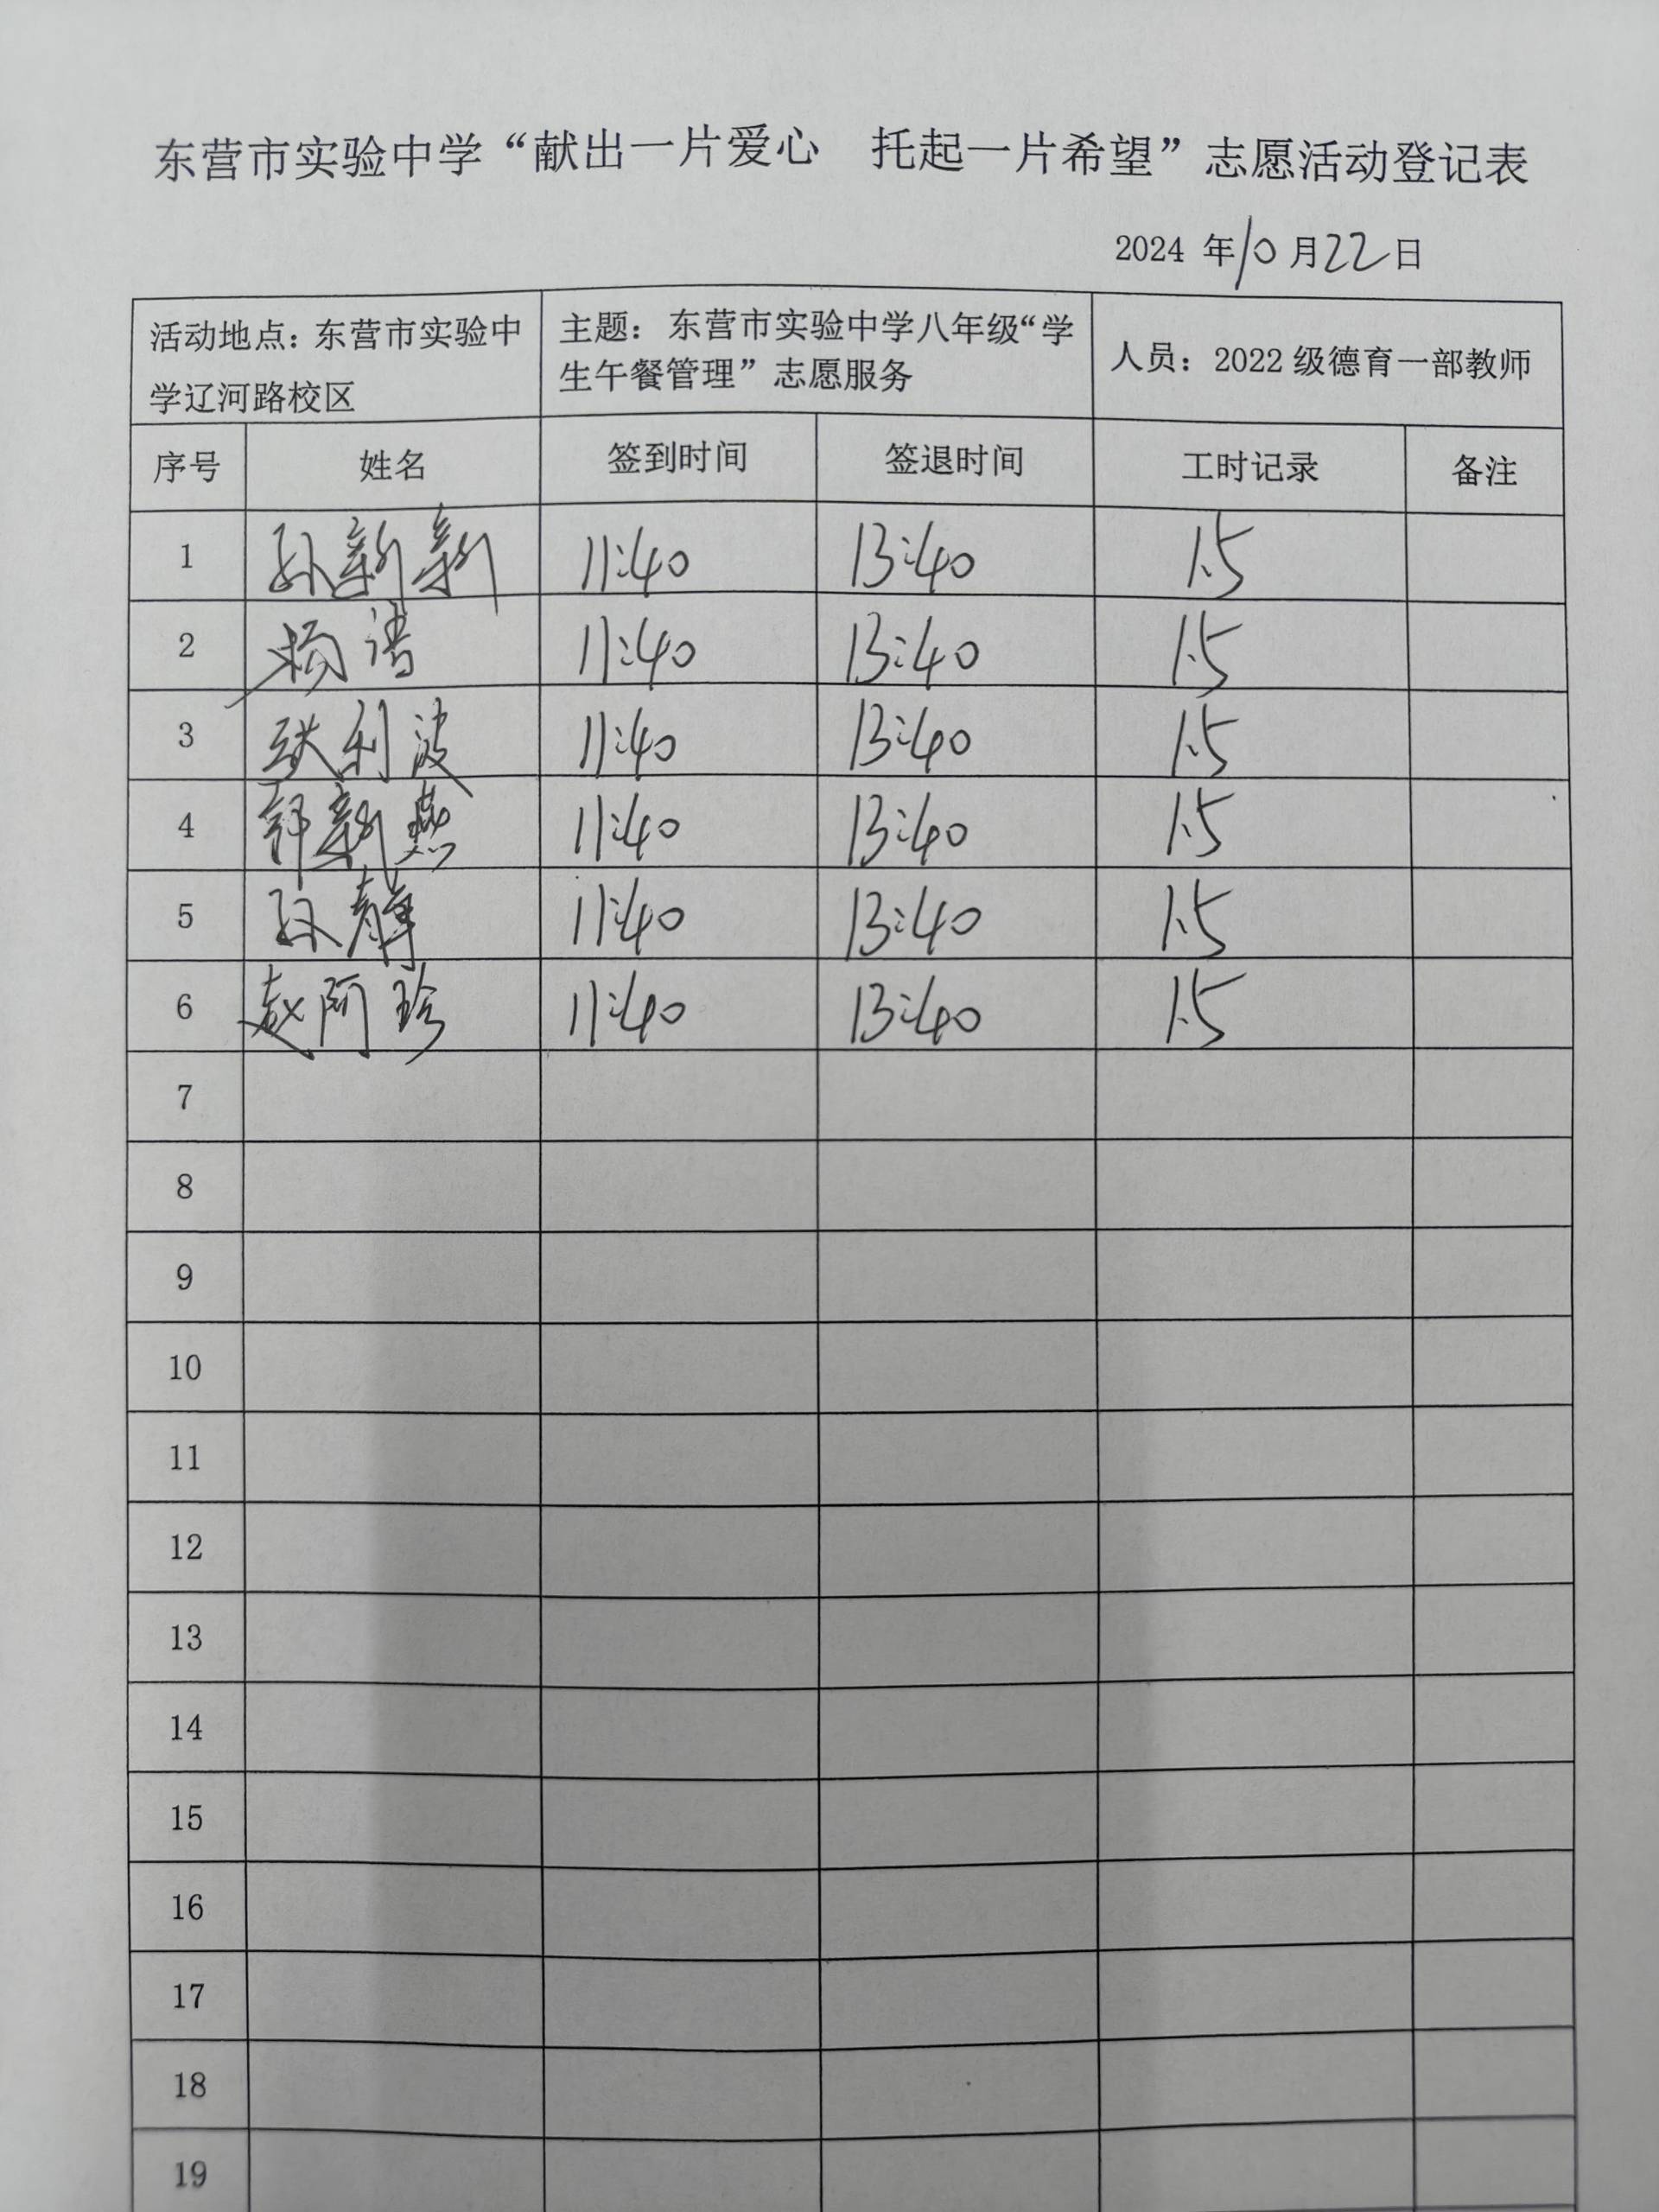 东营市实验中学“献出一片爱心　托起一片希望”志愿活动登记表
2024 年10月22日
活动地点：东营市实验中
学辽河路校区
主题：东营市实验中学八年级“学
生午餐管理”志愿服务
人员：2022 级德育一部教师
序号 姓名 签到时间 签退时间 工时记录 备注
1 孙新新 11:40 13:40 1.5
2 11:40 13:40 1.5
3 耿利波 11:40 13:40 1.5
4 韩新燕 11:40 13:40 1.5
5 孙静 11:40 13:40 1.5
6 赵阿珍 11:40 13:40 1.5
7
8
9
10
11
12
13
14
15
16
17
18
19